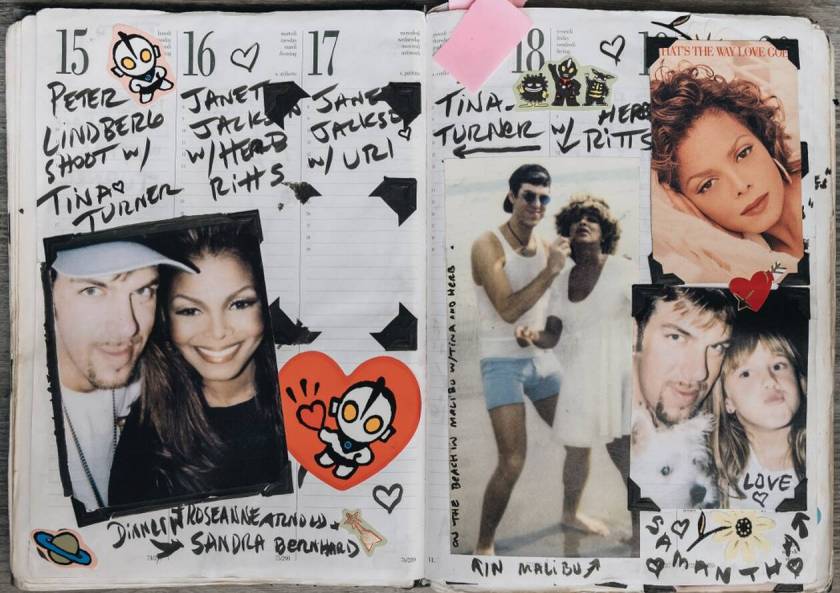 15
PETER
LINDBERG
SHOOT W/
TINA
TURNER
16
JANET
JACKSON
W/HERB
RITTS
17
JANET
JACKSO
W/ URI
DINNER W/ ROSEANNE ARNOLD +
SANDRA BERNHARD
18
TINA
TURNER W/ HERB
RITTS
ON THE BEACH IN MALIBU W/TINA AND HERB
IN MALIBU
THAT'S THE WAY LOVE GOE
LOVE
SAMANTHA